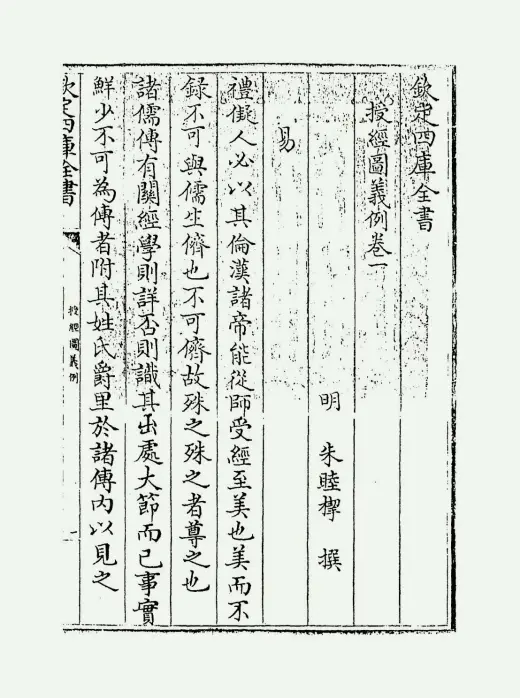 欽定四庫全書
授經圖義例卷一
明 朱睦㮮 撰
易
禮儗人必以其倫漢諸帝能從師受經至美也美而不
録不可與儒生儕也不可儕故殊之殊之者尊之也
諸儒傳有關經學則詳否則識其出處大節而已事實
鮮少不可為傳者附其姓氏爵里於諸傳内以見之
欽定四庫全書
授經圖義例
一